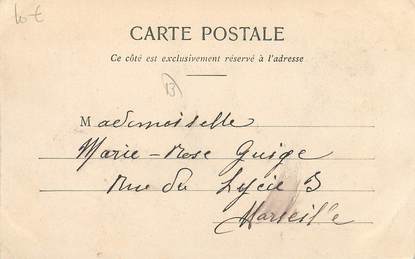 10 €
CARTE POSTALE
Ce côté est exclusivement réservé à l'adresse
13
Mademoiselle
Marie-Rose Guige
Rue du Lycée 3
Marseille